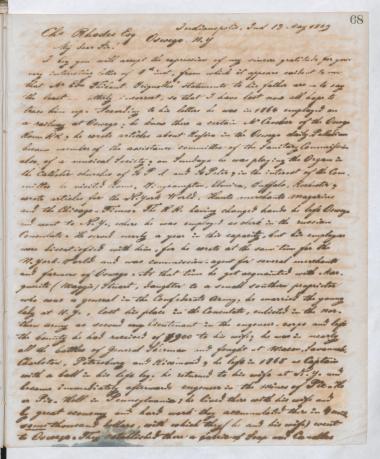 68
Indianapolis, Ind 13 May 1869
Chs Rhodes Esq.
Oswego N.Y.
My dear Sir.
I beg you will accept the expression of my sincere gratitude, for your
very interesting letter of 4th inst, from which it appears evident to me
that Mr
statements to his father are to say
the least, incorrect, so that I have lost now all hope to
trace them up. According to his letters he was in 1860 employed on
a railway at Oswego, he knows there a certain Mr of the Oswego
Rome R.R.; he wrote articles about Russia in the Oswego daily Palladium
became member of the assistance committee of the Sanitary Commission
also, of a musical Society; on Sundays he was playing the Organ in
the Catholic churches of St P. S and St Peter; in the interest of the Com-
mittee he visited Rome, Binghampton, Elmira, Buffalo, Rochester &
wrote articles for the N. York World, Hunts merchants magazine
and the Chicago Times. The R.R. having changed hands he left Oswego
and went to N.Y., where he was employed as clerk in the russian
Consulate. He spent nearly a year in this capacity, but his employers
were dissatisfied with him, for he wrote at the same time for the
N. York World and was commission-agent for several merchants
and farmers of Oswego. At that time he got acquainted with Mar-
guerite (Maggie) Stuart, daughter to a small southern proprietor
who was a general in the Confederate Army, he married the young
lady at N.Y., lost his place in the Consulate, enlisted in the nor-
thern army as second Lieutenant in the engineer corps and left
the bounty he had received of $900 to his wife; he was in nearly
all the battles of General Sherman and fought at Macon, Savannah,
Charleston, Petersburg and Richmond; he left in 1865 as Captain
with a ball in his left leg, he returned to his wife at N.Y. and
became immediately afterwards engineer in the mines of
or Pit Hole in Pennsylvania; he lived there with his wife and
by great economy and hard work they accumulated there in
some thousand dollars, with which they (he and his wife) went
to Oswego. They established there a fabric of Soap and Candles